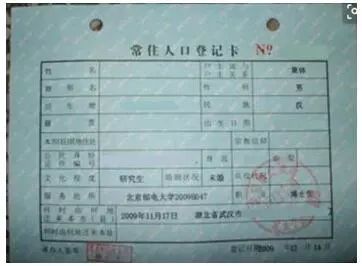 常住人口登记卡 No
姓 名 户主或与户主关系 集体
曾用名 性别 男
出生地 民族 汉
籍贯 出生日期
本市(县)其他住址 宗教信仰
公民身份证件编号 身高 血型
文化程度 研究生 婚姻状况 未婚 兵役状况
服务处所 北京邮电大学 职业
何时由何地迁来本市(县) 2009年11月17日 湖北省武汉市
何时由何地迁来本址
承办人签章 登记日期2009